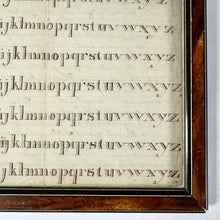 ijklmnopqrstuvwxyz
ijklmnopqrstuvwxyz
ijklmnopqrstuvwxyz
ijklmnopqrstuvwxyz
ijklmnopqrstuvwxyz
ijklmnopqrstuvwxyz